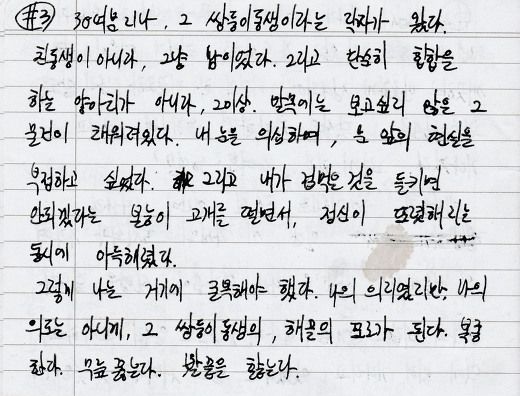 #3) 30여분 뒤나, 그 쌍둥이동생이라는 작자가 왔다.
친동생이 아니라, 그냥 남이었다. 그리고 단순히 협합을
하는 양아치가 아니라, 그이상. 발목에는 보고싶지 않은 그
물건이 채워져있다. 내 눈을 의심하며, 눈 앞의 현실을
부정하고 싶었다. 그리고 내가 겁먹은 것을 들키면
안되겠다는 본능이 고개를 떨면서, 정신이 또렷해지는
동시에 아득해졌다.
그렇게 나는 거기에 굴복해야 했다. 나의 의지였지만, 나의
의도는 아니게, 그 쌍둥이동생의, 해골의 포로가 된다. 복종
한다. 무릎 꿇는다. 발등을 핥는다.